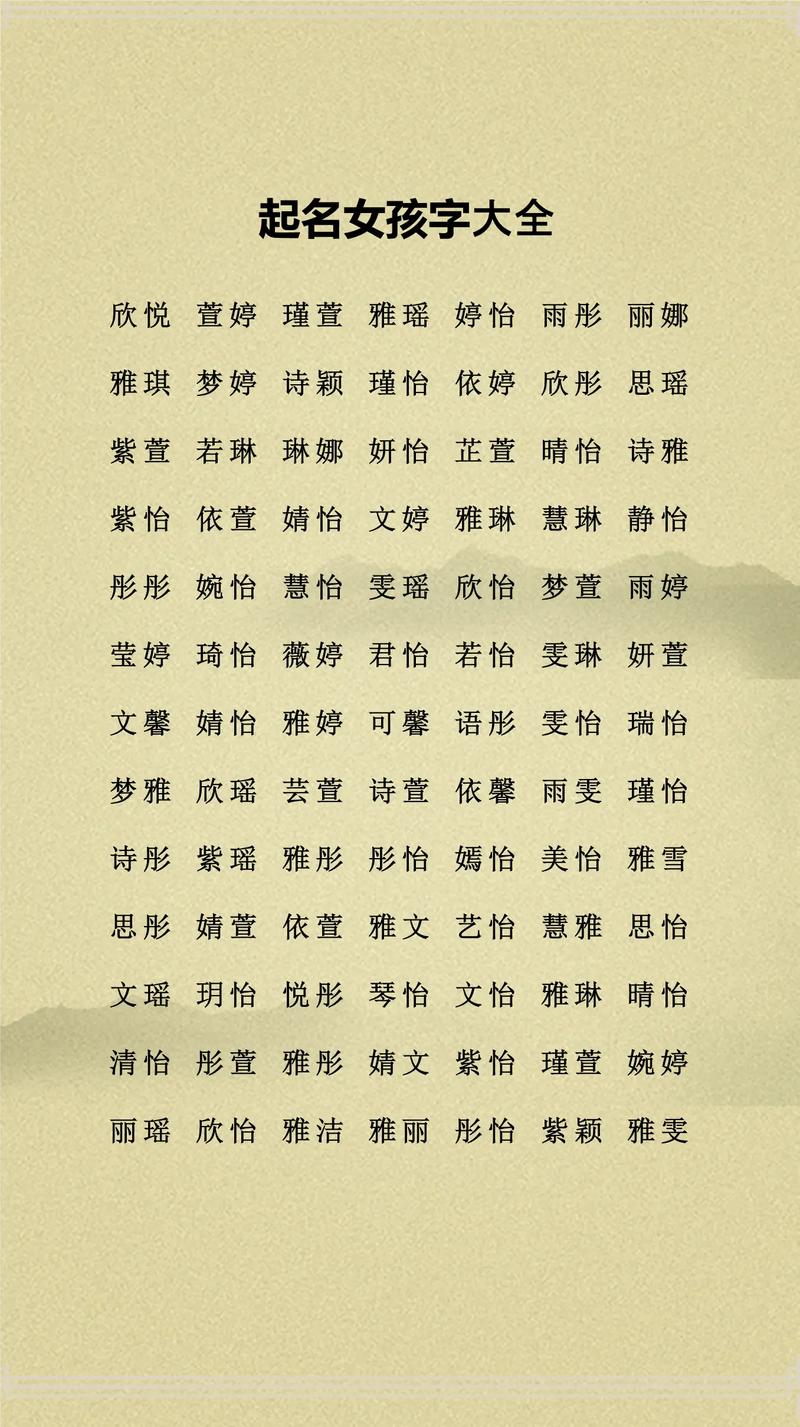 起名女孩字大全
欣悦 萱婷 瑾萱 雅瑶 婷怡 雨彤 丽娜
雅琪 梦婷 诗颖 瑾怡 依婷 欣彤 思瑶
紫萱 若琳 琳娜 妍怡 芷萱 晴怡 诗雅
紫怡 依萱 婧怡 文婷 雅琳 慧琳 静怡
彤彤 婉怡 慧怡 雯瑶 欣怡 梦萱 雨婷
莹婷 琦怡 薇婷 君怡 若怡 雯琳 妍萱
文馨 婧怡 雅婷 可馨 语彤 雯怡 瑞怡
梦雅 欣瑶 芸萱 诗萱 依馨 雨雯 瑾怡
诗彤 紫瑶 雅彤 彤怡 嫣怡 美怡 雅雪
思彤 婧萱 依萱 雅文 艺怡 慧雅 思怡
文瑶 玥怡 悦彤 琴怡 文怡 雅琳 晴怡
清怡 彤萱 雅彤 婧文 紫怡 瑾萱 婉婷
丽瑶 欣怡 雅洁 雅丽 彤怡 紫颖 雅雯